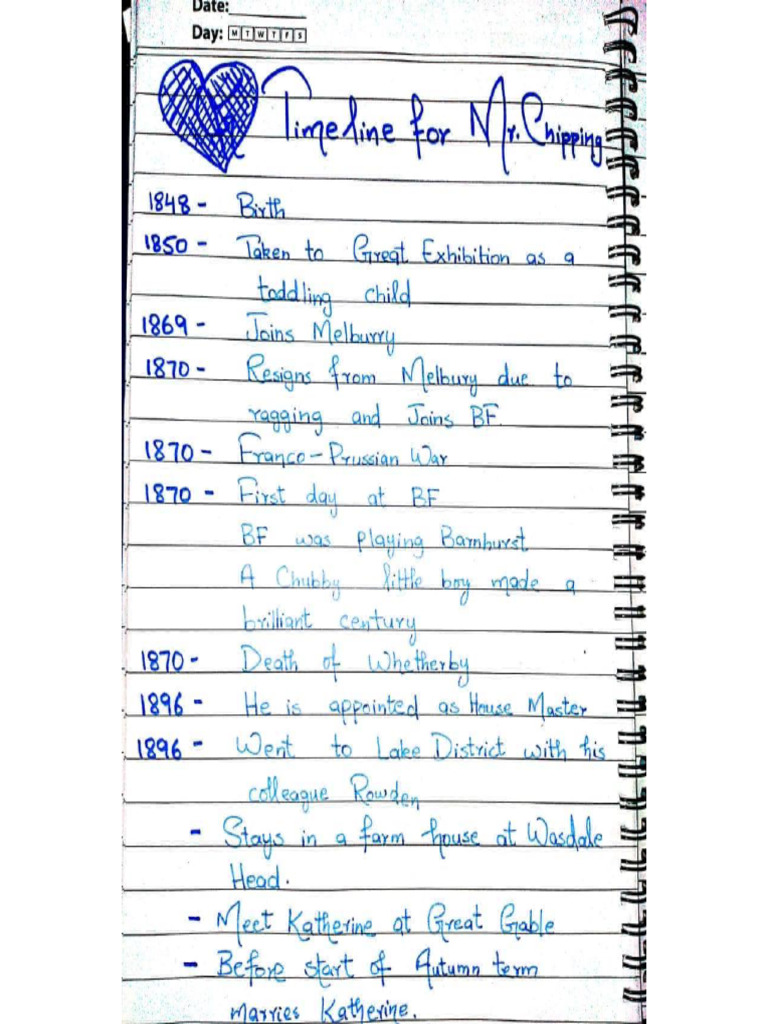 Date:
Day: M T W T F S
Timeline for Mr. Chipping
1848 - Birth
1850 - Taken to Great Exhibition as a
toddling child
1869 - Joins Melburry
1870 - Resigns from Melbury due to
ragging and Joins BF.
1870 - Franco-Prussian War
1870 - First day at BF
BF was playing Barnhurst
A Chubby little boy made a
brilliant century
1870 - Death of Whetherby
1896 - He is appointed as House Master
1896 - Went to Lake District with his
colleague Rowden
- Stays in a farm house at Wasdale
Head.
- Meet Katherine at Great Gable
- Before start of Autumn term
marries Katherine.